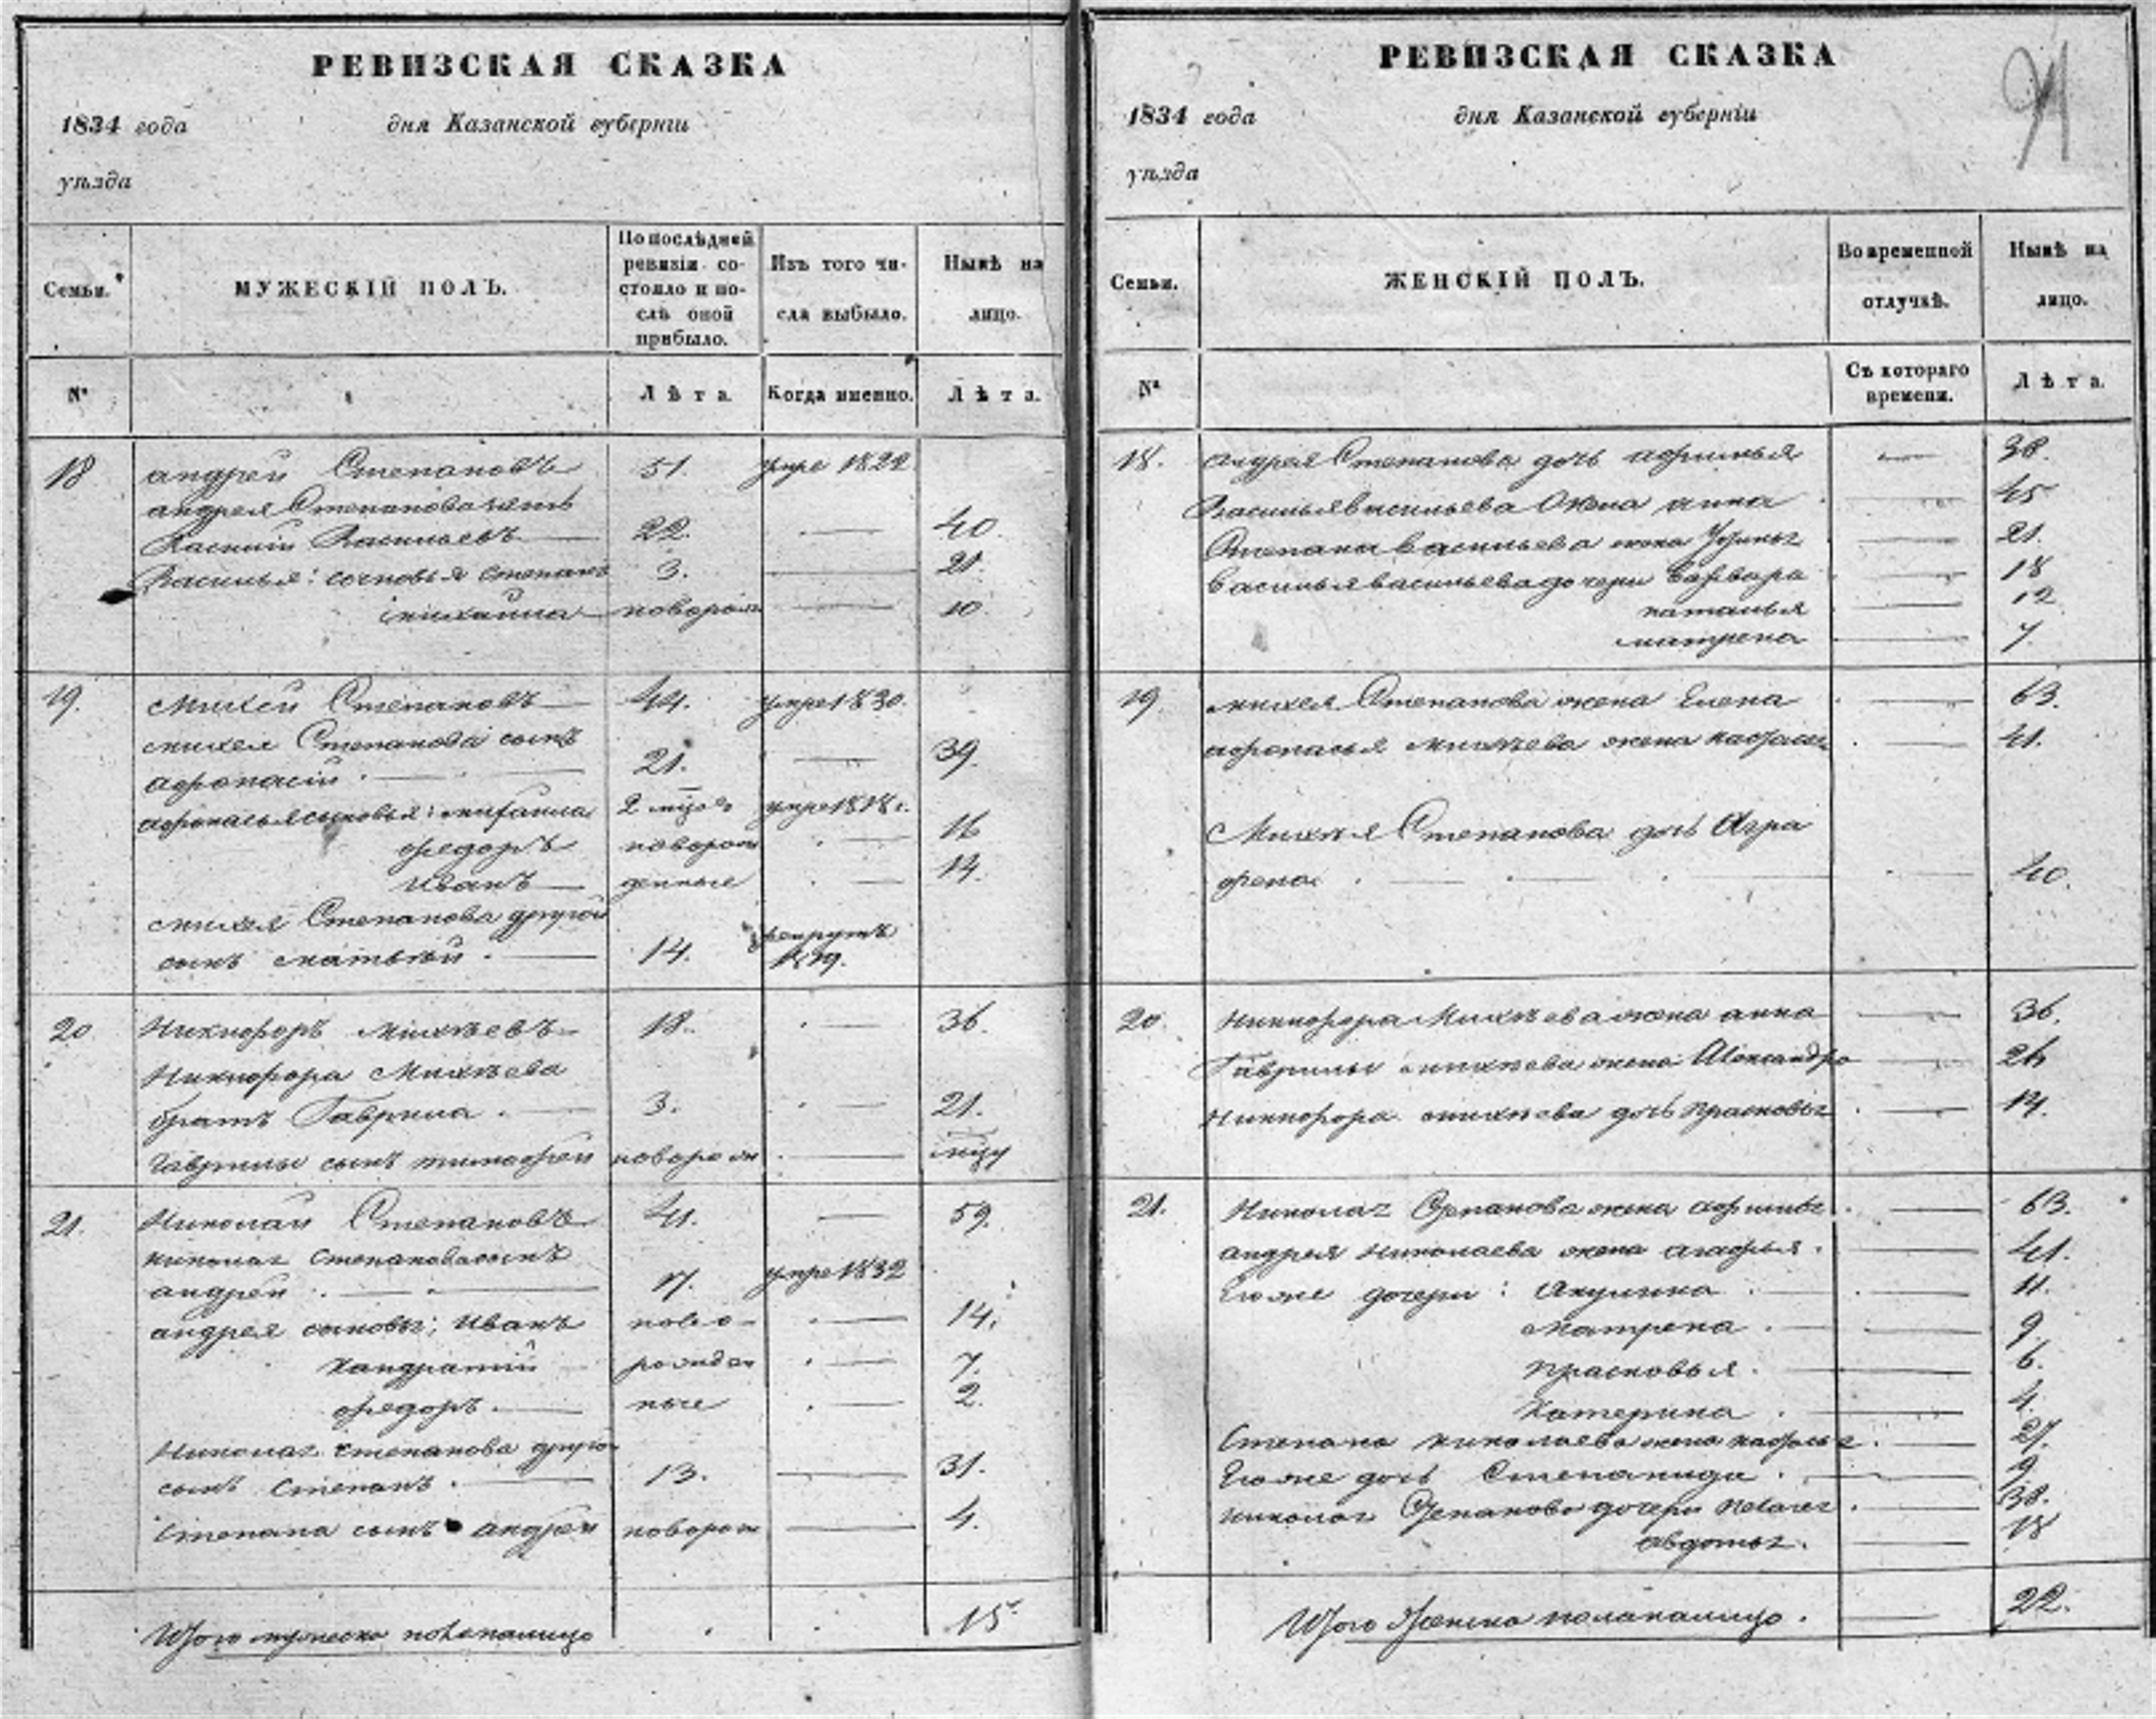 РЕВИЗСКАЯ СКАЗКА
1834 года дня Казанской губерніи
уѣзда
Семьи. МУЖЕСКІЙ ПОЛЪ. По послѣдней ревизіи состояло и послѣ оной прибыло. Изъ того числа выбыло. Нынѣ на лицо.
№ Лѣта. Когда именно. Лѣта.
18 андрей Степановъ 51. умре 1822
андрея Степанова зять
Василий Васильевъ 22. — 40.
Василья: сыновья степанъ 3. — 21.
михаила новорож — 10.
19. Михей Степановъ 44. умре 1830
михея Степанова сынъ
афонасій 21. — 39.
афонасья сыновья: михаила 2 умре 1818 г.
федоръ новорож — 16
Иванъ денные — 14.
михея Степанова другой
сынъ матвей 14. рекрутъ 1819.
20 Никифоръ Михѣевъ 18. — 36.
Никифора Михѣева
братъ Гаврила 3. — 21.
Гаврилы сынъ тимофей новорож —
21. Николай Степановъ 41. — 59.
николая степанова сынъ
андрей 17. умре 1832
андрея сыновья; Иванъ ново- — 14.
Кандратий рожден — 7.
федоръ ные — 2.
Николая степанова другой
сынъ Степанъ 13. — 31.
Степана сынъ андрей новорож — 4.
Итого мужеска пола налицо 15
РЕВИЗСКАЯ СКАЗКА
1834 года дня Казанской губерніи
уѣзда
Семьи. ЖЕНСКІЙ ПОЛЪ. Во временной отлучкѣ. Нынѣ на лицо.
№ Съ котораго времени. Лѣта.
18. андрея Степанова дочь афимья — 38.
Василья васильева жена анна — 45
Степана васильева жена — 21.
василья васильева дочери варвара — 18
наталья — 12
матрена — 7.
19 михея Степанова жена Елена — 63.
афонасья михѣева жена — 41.
Михѣя Степанова дочь Агра
фена — 40.
20. Никифора Михѣева жена анна — 36.
Гаврилы михѣева жена Александра — 26
Никифора михѣева дочь прасковья — 14.
21. Николая Степанова жена афимья — 63.
андрея Николаева жена агафья — 41.
Егоже дочери: Акулина — 11.
Матрена — 9.
прасковья — 6.
Катерина — 4.
Степана николаева жена — 27.
Егоже дочь Степанида — 9
николая Степанова дочери — 38.
авдотья — 18
Итого женска пола налицо — 22.